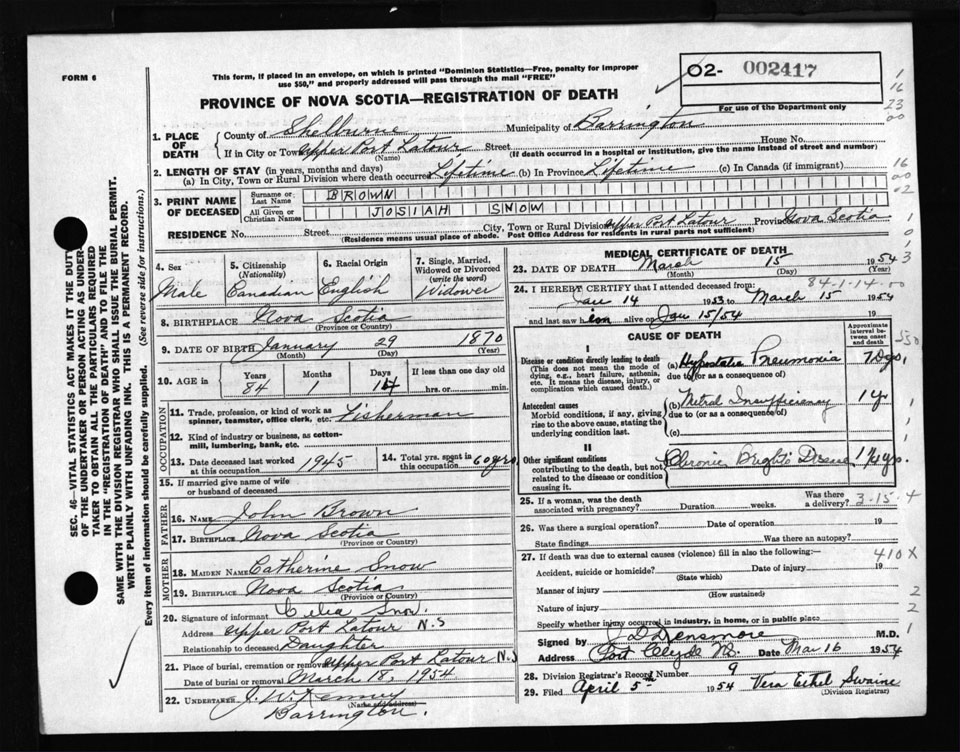 FORM 6
This form, if placed in an envelope, on which is printed "Dominion Statistics—Free, penalty for improper
use $50," and properly addressed will pass through the mail "FREE"
O2- 002417
For use of the Department only
PROVINCE OF NOVA SCOTIA—REGISTRATION OF DEATH
1. PLACE OF DEATH
County of Shelburne Municipality of Barrington
If in City or Town Upper Port Latour Street House No.
(Name) (If death occurred in a hospital or institution, give the name instead of street and number)
2. LENGTH OF STAY (in years, months and days)
(a) In City, Town or Rural Division where death occurred Lifetime (b) In Province Lifetime (c) In Canada (if immigrant)
3. PRINT NAME OF DECEASED
Surname or Last Name BROWN
All Given or Christian Names JOSIAH SNOW
RESIDENCE No. Street City, Town or Rural Division Upper Port Latour Province Nova Scotia
(Residence means usual place of abode. Post Office Address for residents in rural parts not sufficient)
4. Sex
Male
5. Citizenship (Nationality)
Canadian
6. Racial Origin
English
7. Single, Married, Widowed or Divorced (write the word)
Widower
8. BIRTHPLACE Nova Scotia
(Province or Country)
9. DATE OF BIRTH January 29 1870
(Month) (Day) (Year)
10. AGE in Years Months Days If less than one day old
84 1 14 hrs. or min.
OCCUPATION
11. Trade, profession, or kind of work as spinner, teamster, office clerk, etc. Fisherman
12. Kind of industry or business, as cotton-mill, lumbering, bank, etc.
13. Date deceased last worked at this occupation 1945
14. Total yrs. spent in this occupation 60 yrs.
15. If married give name of wife or husband of deceased
FATHER
16. NAME John Brown
17. BIRTHPLACE Nova Scotia
(Province or Country)
MOTHER
18. MAIDEN NAME Catherine Snow
19. BIRTHPLACE Nova Scotia
(Province or Country)
20. Signature of informant Celia Snow.
Address Upper Port Latour N.S
Relationship to deceased Daughter
21. Place of burial, cremation or removal Upper Port Latour N.S
Date of burial or removal March 18, 1954
22. UNDERTAKER J. W. Kenney
(Name and address)
Barrington.
MEDICAL CERTIFICATE OF DEATH
23. DATE OF DEATH March 15 1954
(Month) (Day) (Year)
84-1-14-00
24. I HEREBY CERTIFY that I attended deceased from:
Jan 14 1953 to March 15 1954
and last saw him alive on Jan 15/54
CAUSE OF DEATH
Approximate interval between onset and death
I
Disease or condition directly leading to death
(This does not mean the mode of dying, e.g., heart failure, asthenia, etc. It means the disease, injury, or complication which caused death.)
(a) Hypostatic Pneumonia 7 Dys.
due to (or as a consequence of)
Antecedent causes
Morbid conditions, if any, giving rise to the above cause, stating the underlying condition last.
(b) Mitral Insufficiency 1 yr
due to (or as a consequence of)
(c)
II
Other significant conditions
contributing to the death, but not related to the disease or condition causing it
Chronic Brights Disease
25. If a woman, was the death associated with pregnancy? Duration weeks. Was there a delivery?
3-15-4
26. Was there a surgical operation? Date of operation 19
State findings Was there an autopsy?
27. If death was due to external causes (violence) fill in also the following:
410X
Accident, suicide or homicide? Date of injury 19
(State which)
Manner of injury
(How sustained)
Nature of injury
Specify whether injury occurred in industry, in home, or in public place
Signed by J D Densmore M.D.
Address Port Clyde NS. Date Mar 16 1954
28. Division Registrar's Record Number 9
29. Filed April 5th 1954 Vera Ethel Swaine
(Division Registrar)
SEC. 46—VITAL STATISTICS ACT MAKES IT THE DUTY
OF THE UNDERTAKER OR PERSON ACTING AS UNDERTAKER
TO OBTAIN ALL THE PARTICULARS REQUIRED
IN THE "REGISTRATION OF DEATH" AND TO FILE THE
SAME WITH THE DIVISION REGISTRAR WHO SHALL ISSUE THE BURIAL PERMIT.
WRITE PLAINLY WITH UNFADING INK. THIS IS A PERMANENT RECORD.
Every item of information should be carefully supplied. (See reverse side for instructions.)